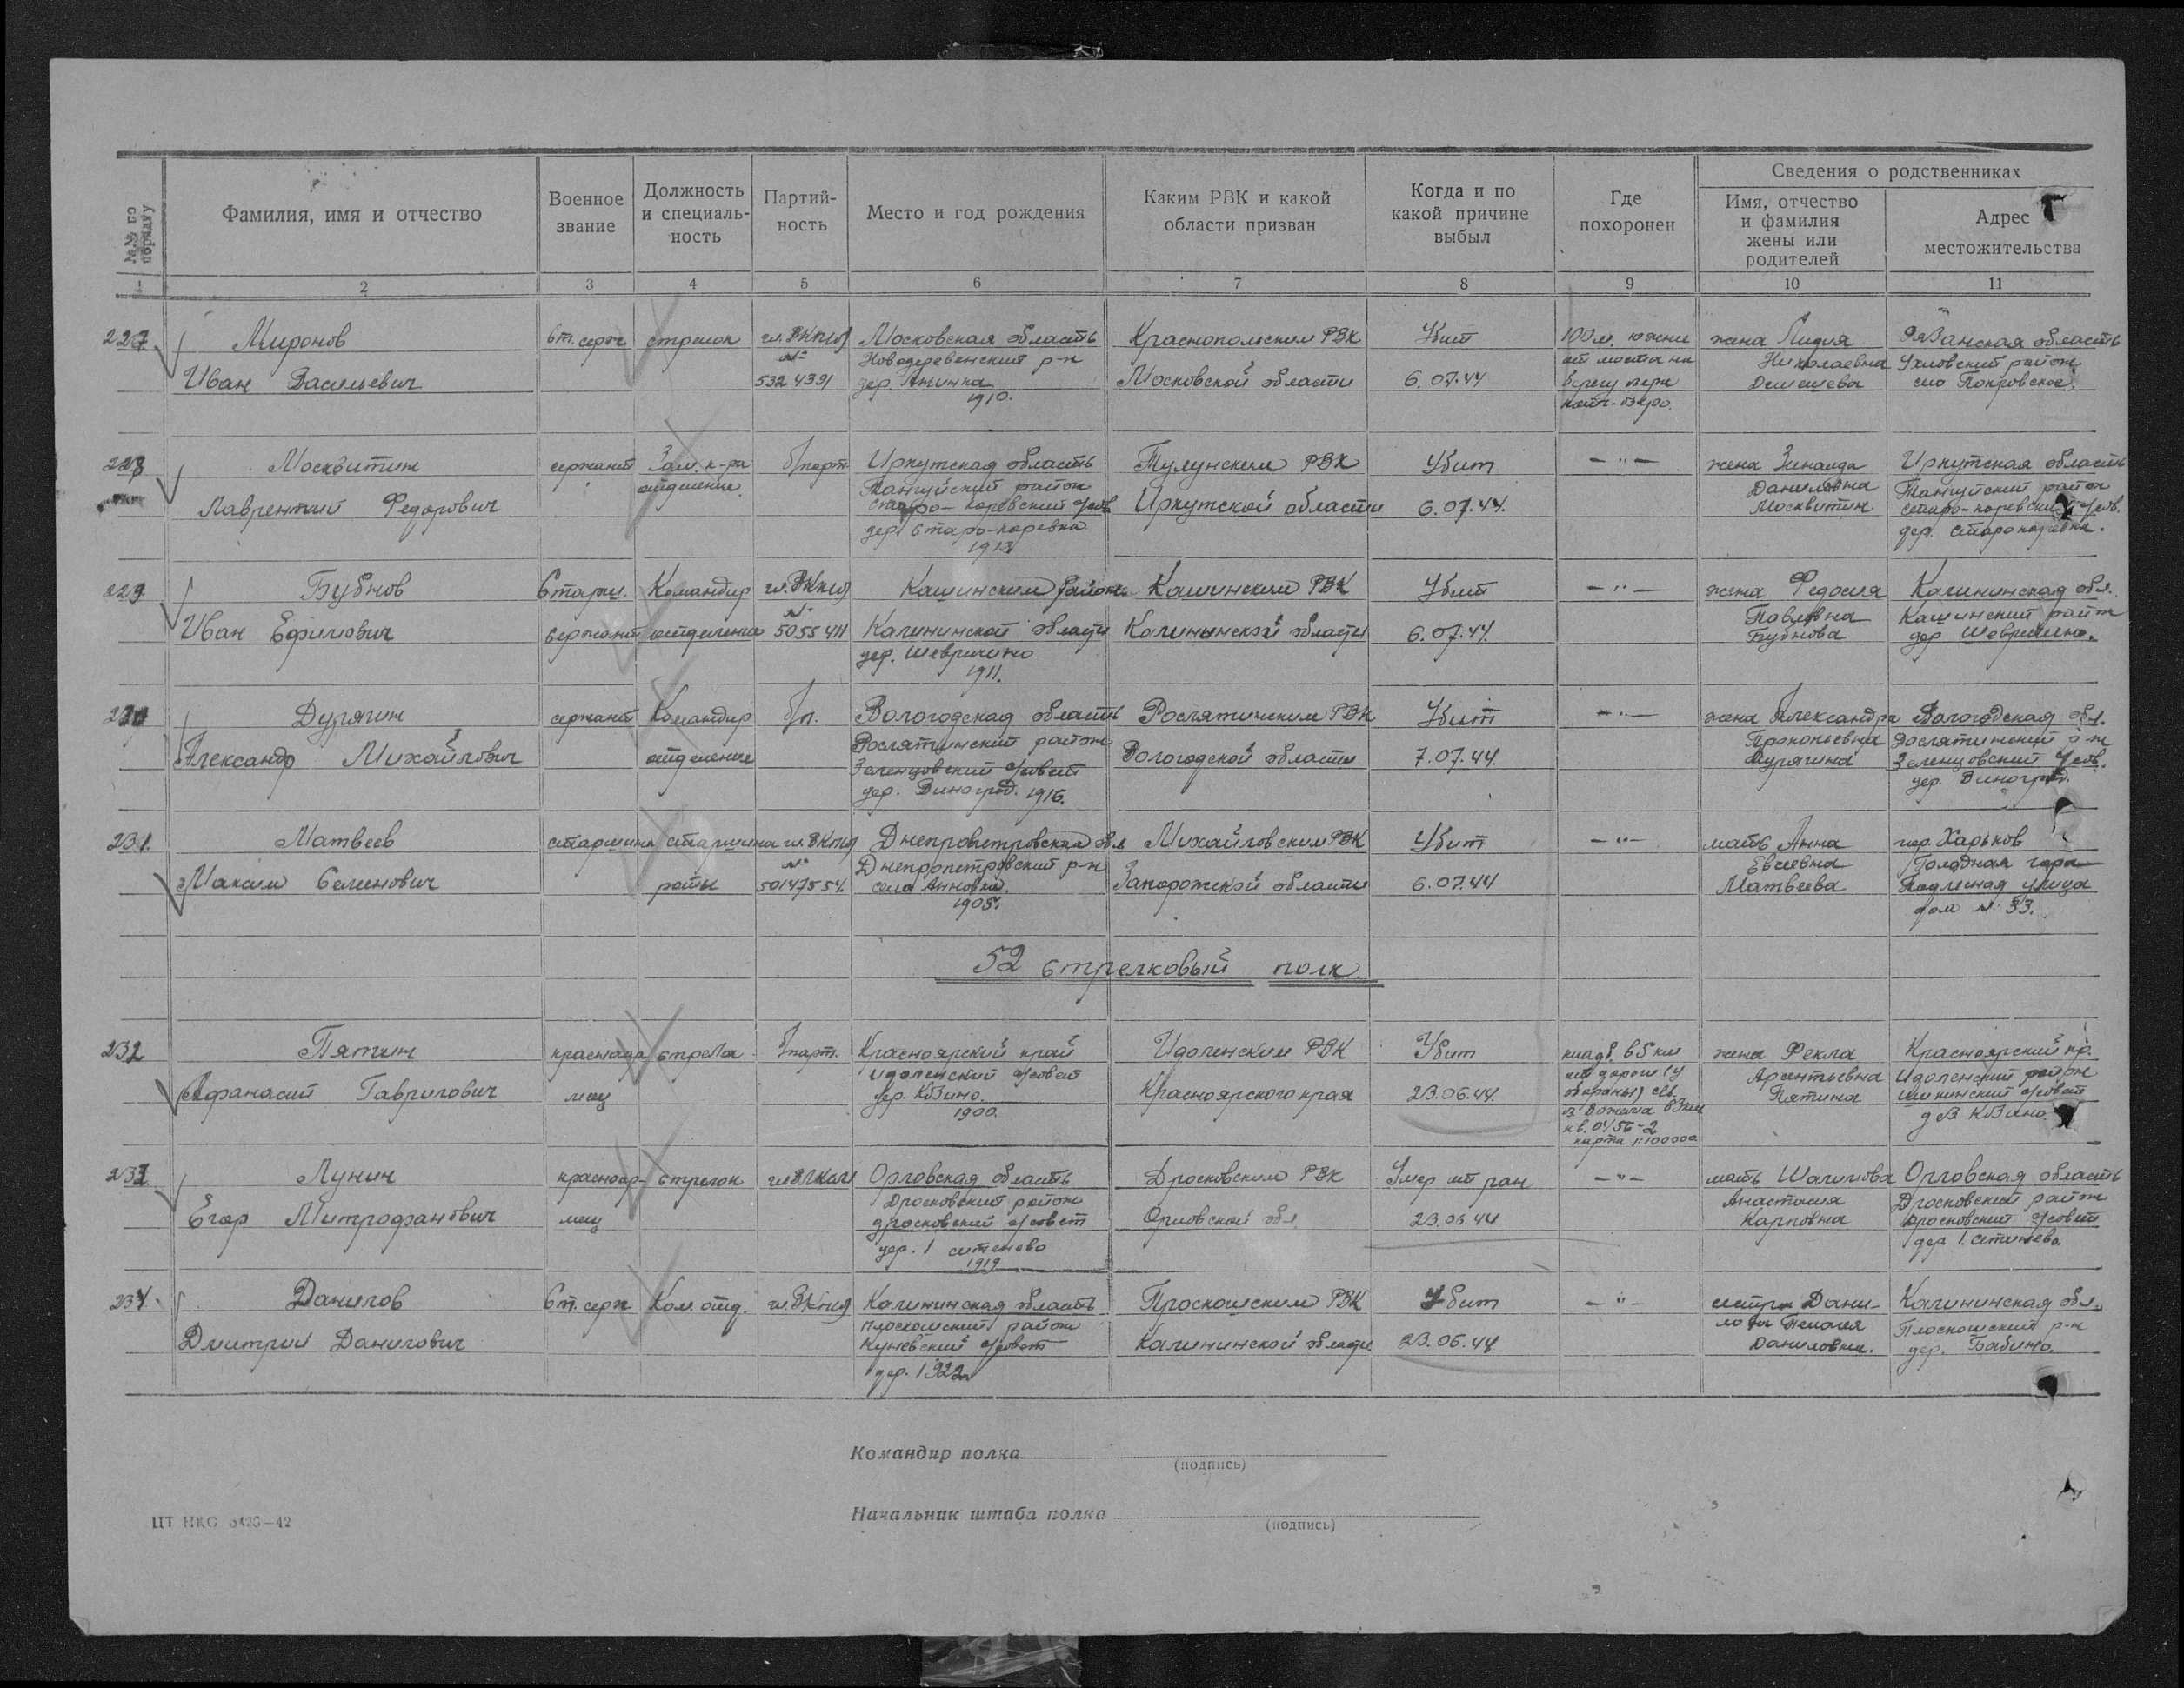 №№ по порядку
Фамилия, имя и отчество
Военное звание
Должность и специаль-ность
Партий-ность
Место и год рождения
Каким РВК и какой области призван
Когда и по какой причине выбыл
Где похоронен
Сведения о родственниках
Имя, отчество и фамилия жены или родителей
Адрес местожительства
1 2 3 4 5 6 7 8 9 10 11
227 Миронов Ст. серж стрелок чл. ВКП(б) Московская область Краснопольским РВК Убит 100 м. южнее жена Лидия Рязанская область
№ Новодеревенский р-н от моста на Николаевна Ухоловский район
Иван Васильевич 5324391 дер. Московской области 6.07.44 берегу село Покровское
1910.
228 Москвитин сержант Зам. к-ра б/парт. Иркутская область Тулунским РВК Убит —"— жена Зинаида Иркутская область
отделение Тангуйский район Даниловна Тангуйский район
Лаврентий Федорович Старо-Каревский с/сов Иркутской области 6.07.44. Москвитин старо-каревский с/сов.
дер. Старо-каревка дер.
1913
229 Бубнов Старш. Командир чл. ВКП(б) Кашинским район Кашинским РВК Убит —"— жена Федосия Калининская обл.
№ Павловна Кашинский район
Иван Ефимович сержант отделение 5055411 Калининской области Калининской области 6.07.44. Бубнова дер
дер.
1911.
230 Дурягин сержант Командир б/п. Вологодская область Рослятинским РВК Убит —"— жена Александра Вологодская обл.
Рослятинский район Прокопьевна Рослятинский р-н
Александр Михайлович отделение Зеленцовский с/совет Вологодской области 7.07.44. Дурягина Зеленцовский с/сов.
дер. Виноград. 1916. дер. Виноград.
231. Матвеев старшина старшина чл. ВКП(б) Днепропетровская обл Михайловским РВК Убит —"— мать Анна гор. Харьков
№ Днепропетровский р-н Евсеевна Голодная гора
Максим Семенович роты 5014755 село Анновка. Запорожской области 6.07.44 Матвеева улица
1905. дом № 33.
52 стрелковый полк.
232 Пятин красноар стрелок б/парт. Красноярский край Идоленским РВК Убит кладб. в 5 км жена Фекла Красноярский кр.
Идоленский с/совет от дороги (у Арентьевна Идоленский район
Афанасий Гаврилович меец Красноярского края 23.06.44. Пятина с/совет
1900.
карта 1:100000
233 Лунин красноар- стрелок чл ВЛКСМ Орловская область Дросковским РВК Умер от ран —"— мать Шалимова Орловская область
Дросковский район Анастасия Дросковский район
Егор Митрофанович меец дросковский с/совет Орловской обл. 23.06.44 Карповна дросковский с/совет
дер. 1 ситенево дер 1.
1919
234. Данилов Ст. серж Ком. отд. чл. ВКП(б) Калининская область Плоскошским РВК Убит —"— сестра Дани- Калининская обл.
плоскошский район лова Пелагея Плоскошский р-н
Дмитрий Данилович с/совет Калининской области 23.06.44 Даниловна. дер. Бабино.
дер. 1922
Командир полка
(подпись)
Начальник штаба полка
(подпись)
ЦТ НКО 3423—42